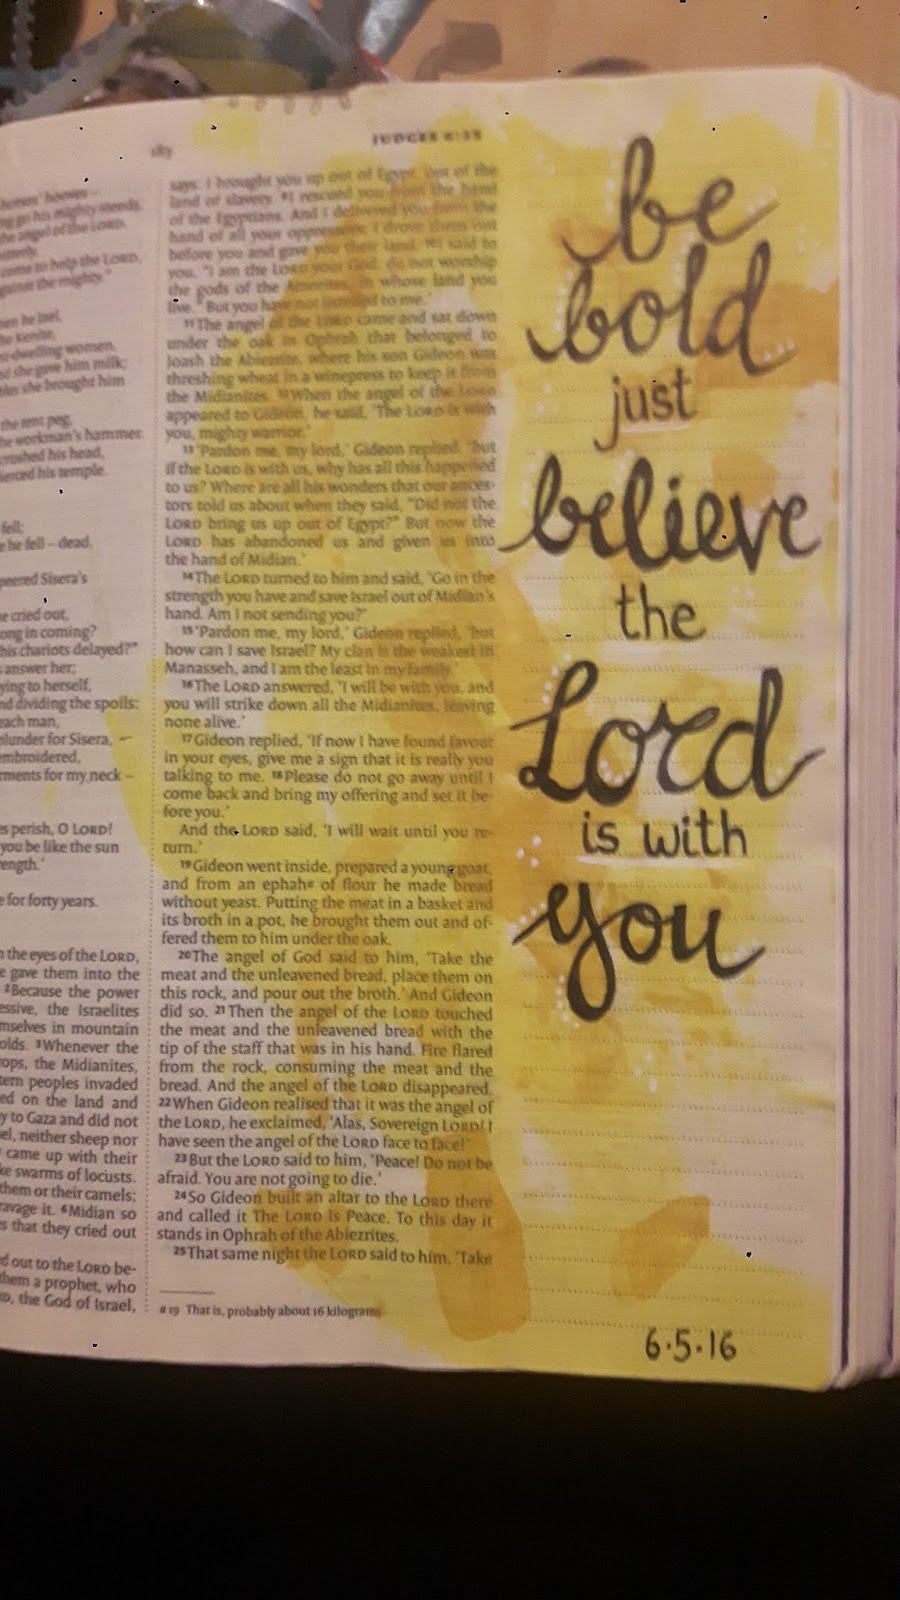 187
JUDGES 6:25
horses' hooves –
go his mighty steeds.
the angel of the LORD.
come to help the LORD,
against the mighty."
dwelling women.
she gave him milk;
she brought him
the tent peg,
workman's hammer.
crushed his head,
pierced his temple.
fell;
he fell – dead.
peered Sisera's
cried out,
long in coming?
his chariots delayed?"
answer her;
to herself,
dividing the spoils:
each man,
plunder for Sisera, –
embroidered,
garments for my neck –
perish, O LORD!
you be like the sun
for forty years.
the eyes of the LORD,
gave them into the
2Because the power
the Israelites
in mountain
3Whenever the
the Midianites,
peoples invaded
on the land and
to Gaza and did not
neither sheep nor
came up with their
swarms of locusts.
them or their camels;
ravage it. 6Midian so
that they cried out
out to the LORD be-
them a prophet, who
the God of Israel,
says: I brought you up out of Egypt, out of the
land of slavery. 9I rescued you from the hand
of the Egyptians. And I delivered you from the
hand of all your oppressors; I drove them out
before you and gave you their land. 10I said to
you, "I am the LORD your God; do not worship
the gods of the Amorites, in whose land you
live." But you have not listened to me.'
11The angel of the LORD came and sat down
under the oak in Ophrah that belonged to
Joash the Abiezrite, where his son Gideon was
threshing wheat in a winepress to keep it from
the Midianites. 12When the angel of the LORD
appeared to Gideon, he said, 'The LORD is with
you, mighty warrior.'
13'Pardon me, my lord,' Gideon replied, 'but
if the LORD is with us, why has all this happened
to us? Where are all his wonders that our ances-
tors told us about when they said, "Did not the
LORD bring us up out of Egypt?" But now the
LORD has abandoned us and given us into
the hand of Midian.'
14The LORD turned to him and said, 'Go in the
strength you have and save Israel out of Midian's
hand. Am I not sending you?'
15'Pardon me, my lord,' Gideon replied, 'but
how can I save Israel? My clan is the weakest in
Manasseh, and I am the least in my family.'
16The LORD answered, 'I will be with you, and
you will strike down all the Midianites, leaving
none alive.'
17Gideon replied, 'If now I have found favour
in your eyes, give me a sign that it is really you
talking to me. 18Please do not go away until I
come back and bring my offering and set it be-
fore you.'
And the LORD said, 'I will wait until you re-
turn.'
19Gideon went inside, prepared a young goat,
and from an ephah a of flour he made bread
without yeast. Putting the meat in a basket and
its broth in a pot, he brought them out and of-
fered them to him under the oak.
20The angel of God said to him, 'Take the
meat and the unleavened bread, place them on
this rock, and pour out the broth.' And Gideon
did so. 21Then the angel of the LORD touched
the meat and the unleavened bread with the
tip of the staff that was in his hand. Fire flared
from the rock, consuming the meat and the
bread. And the angel of the LORD disappeared.
22When Gideon realised that it was the angel of
the LORD, he exclaimed, 'Alas, Sovereign LORD! I
have seen the angel of the LORD face to face!'
23But the LORD said to him, 'Peace! Do not be
afraid. You are not going to die.'
24So Gideon built an altar to the LORD there
and called it The LORD Is Peace. To this day it
stands in Ophrah of the Abiezrites.
25That same night the LORD said to him, 'Take
a 19 That is, probably about 16 kilograms
be
bold
just
believe
the
Lord
is with
you
6.5.16